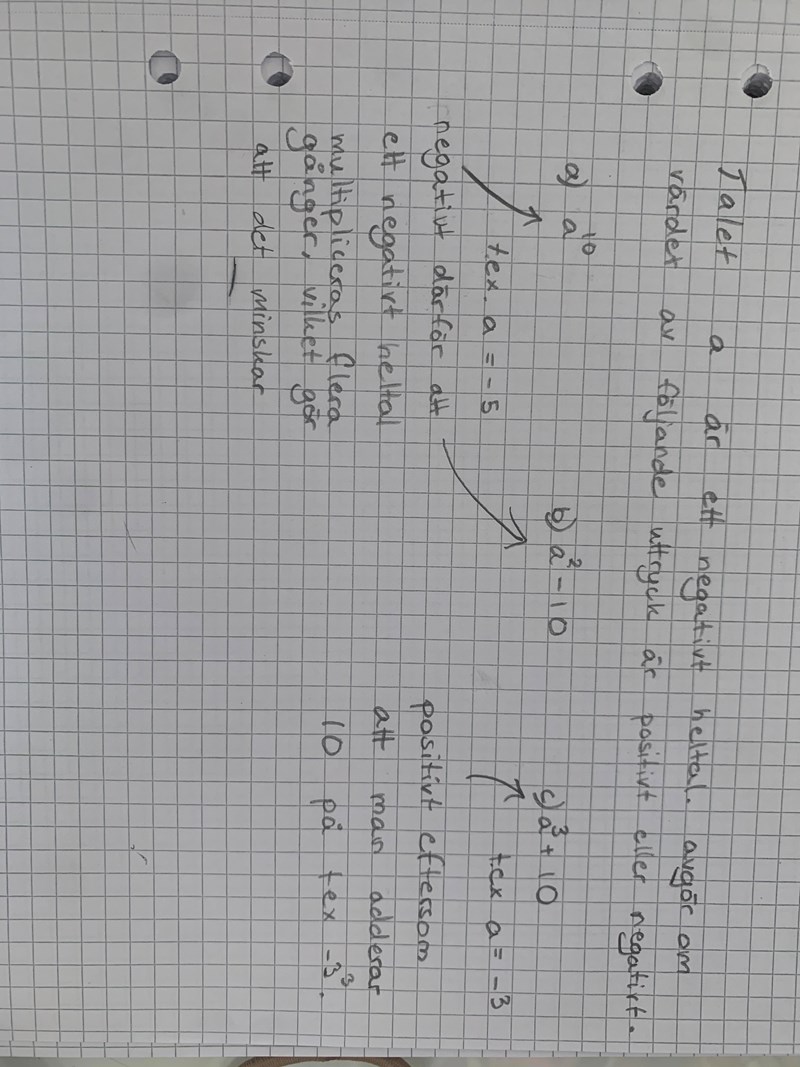 Talet a är ett negativt heltal. avgör om
värdet av följande uttryck är positivt eller negativt.
a) a¹⁰
t.ex. a = -5
negativt därför att
ett negativt heltal
multipliceras flera
gånger, vilket gör
att det minskar
b) a² - 10
c) a³ + 10
t.ex a = -3
positivt eftersom
att man adderar
10 på t.ex -3³.